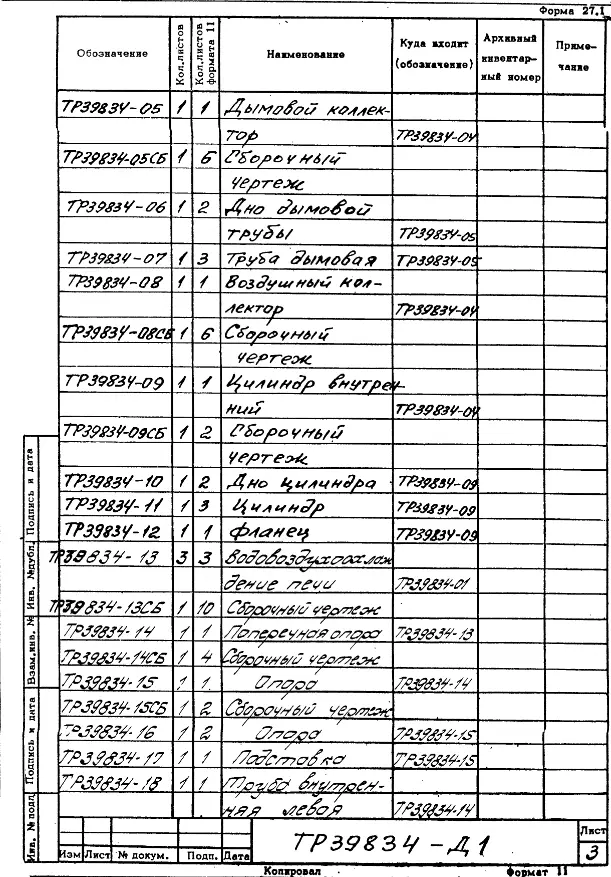 Форма 27.1
Обозначение Кол.листов Кол.листов формата 11 Наименование Куда входит (обозначение) Архивный инвентарный номер Примечание
ТР39834-05 1 1 Дымовой коллек-
тор ТР39834-04
ТР39834-05СБ 1 6 Сборочный
чертеж
ТР39834-06 1 2 Дно дымовой
трубы ТР39834-05
ТР39834-07 1 3 Труба дымовая ТР39834-05
ТР39834-08 1 1 Воздушный кол-
лектор ТР39834-04
ТР39834-08СБ 1 6 Сборочный
чертеж
ТР39834-09 1 1 Цилиндр внутрен-
ний ТР39834-04
ТР39834-09СБ 1 2 Сборочный
чертеж
ТР39834-10 1 2 Дно цилиндра ТР39834-09
ТР39834-11 1 3 Цилиндр ТР39834-09
ТР39834-12 1 1 Фланец ТР39834-09
ТР39834-13 3 3 Водовоздухоохлаж
дение печи ТР39834-01
ТР39834-13СБ 1 10 Сборочный чертеж
ТР39834-14 1 1 Поперечная опора ТР39834-13
ТР39834-14СБ 1 4 Сборочный чертеж
ТР39834-15 1 1 Опора ТР39834-14
ТР39834-15СБ 1 2 Сборочный чертеж
ТР39834-16 1 2 Опора ТР39834-15
ТР39834-17 1 1 Подставка ТР39834-15
ТР39834-18 1 1 Труба внутрен-
няя левая ТР39834-14
Инв. № подл Подпись и дата Взам.инв. № Инв. № дубл. Подпись и дата
ТР39834-Д1
Лист
3
Изм Лист № докум. Подп. Дата
Копировал Формат 11